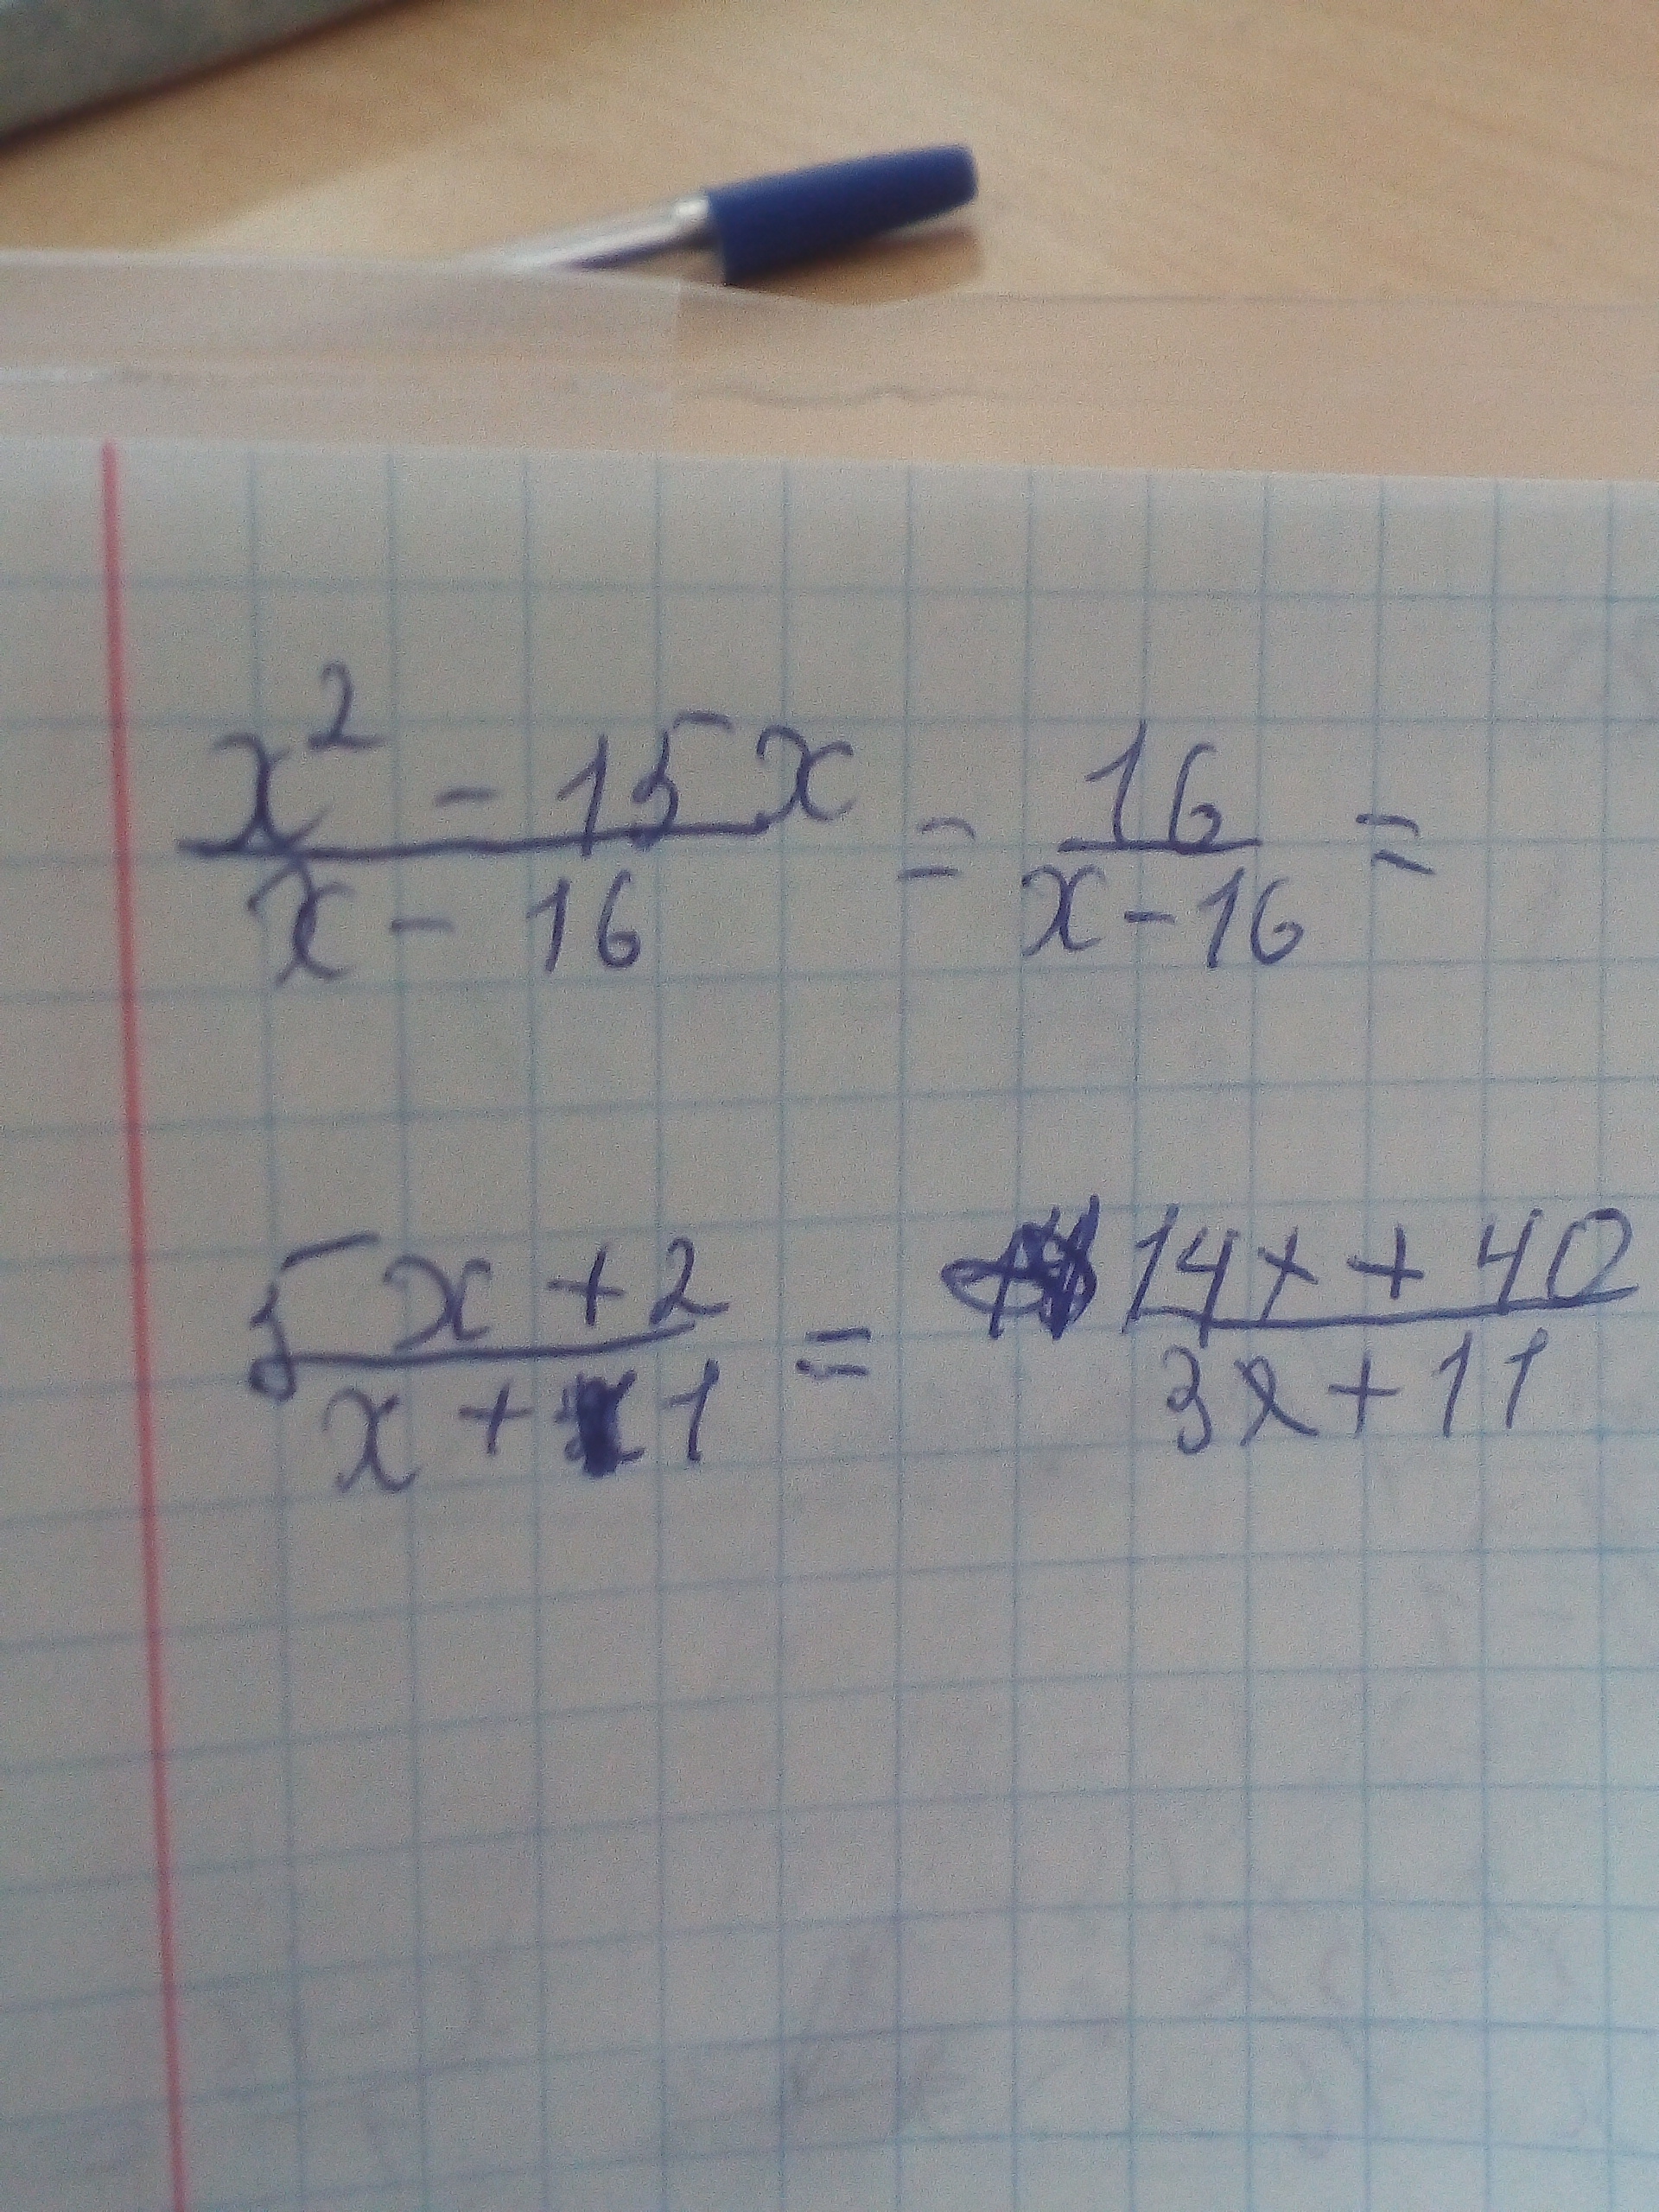 x² - 15x / x - 16 = 16 / x - 16 =
5x + 2 / x + 1 = 14x + 40 / 3x + 11